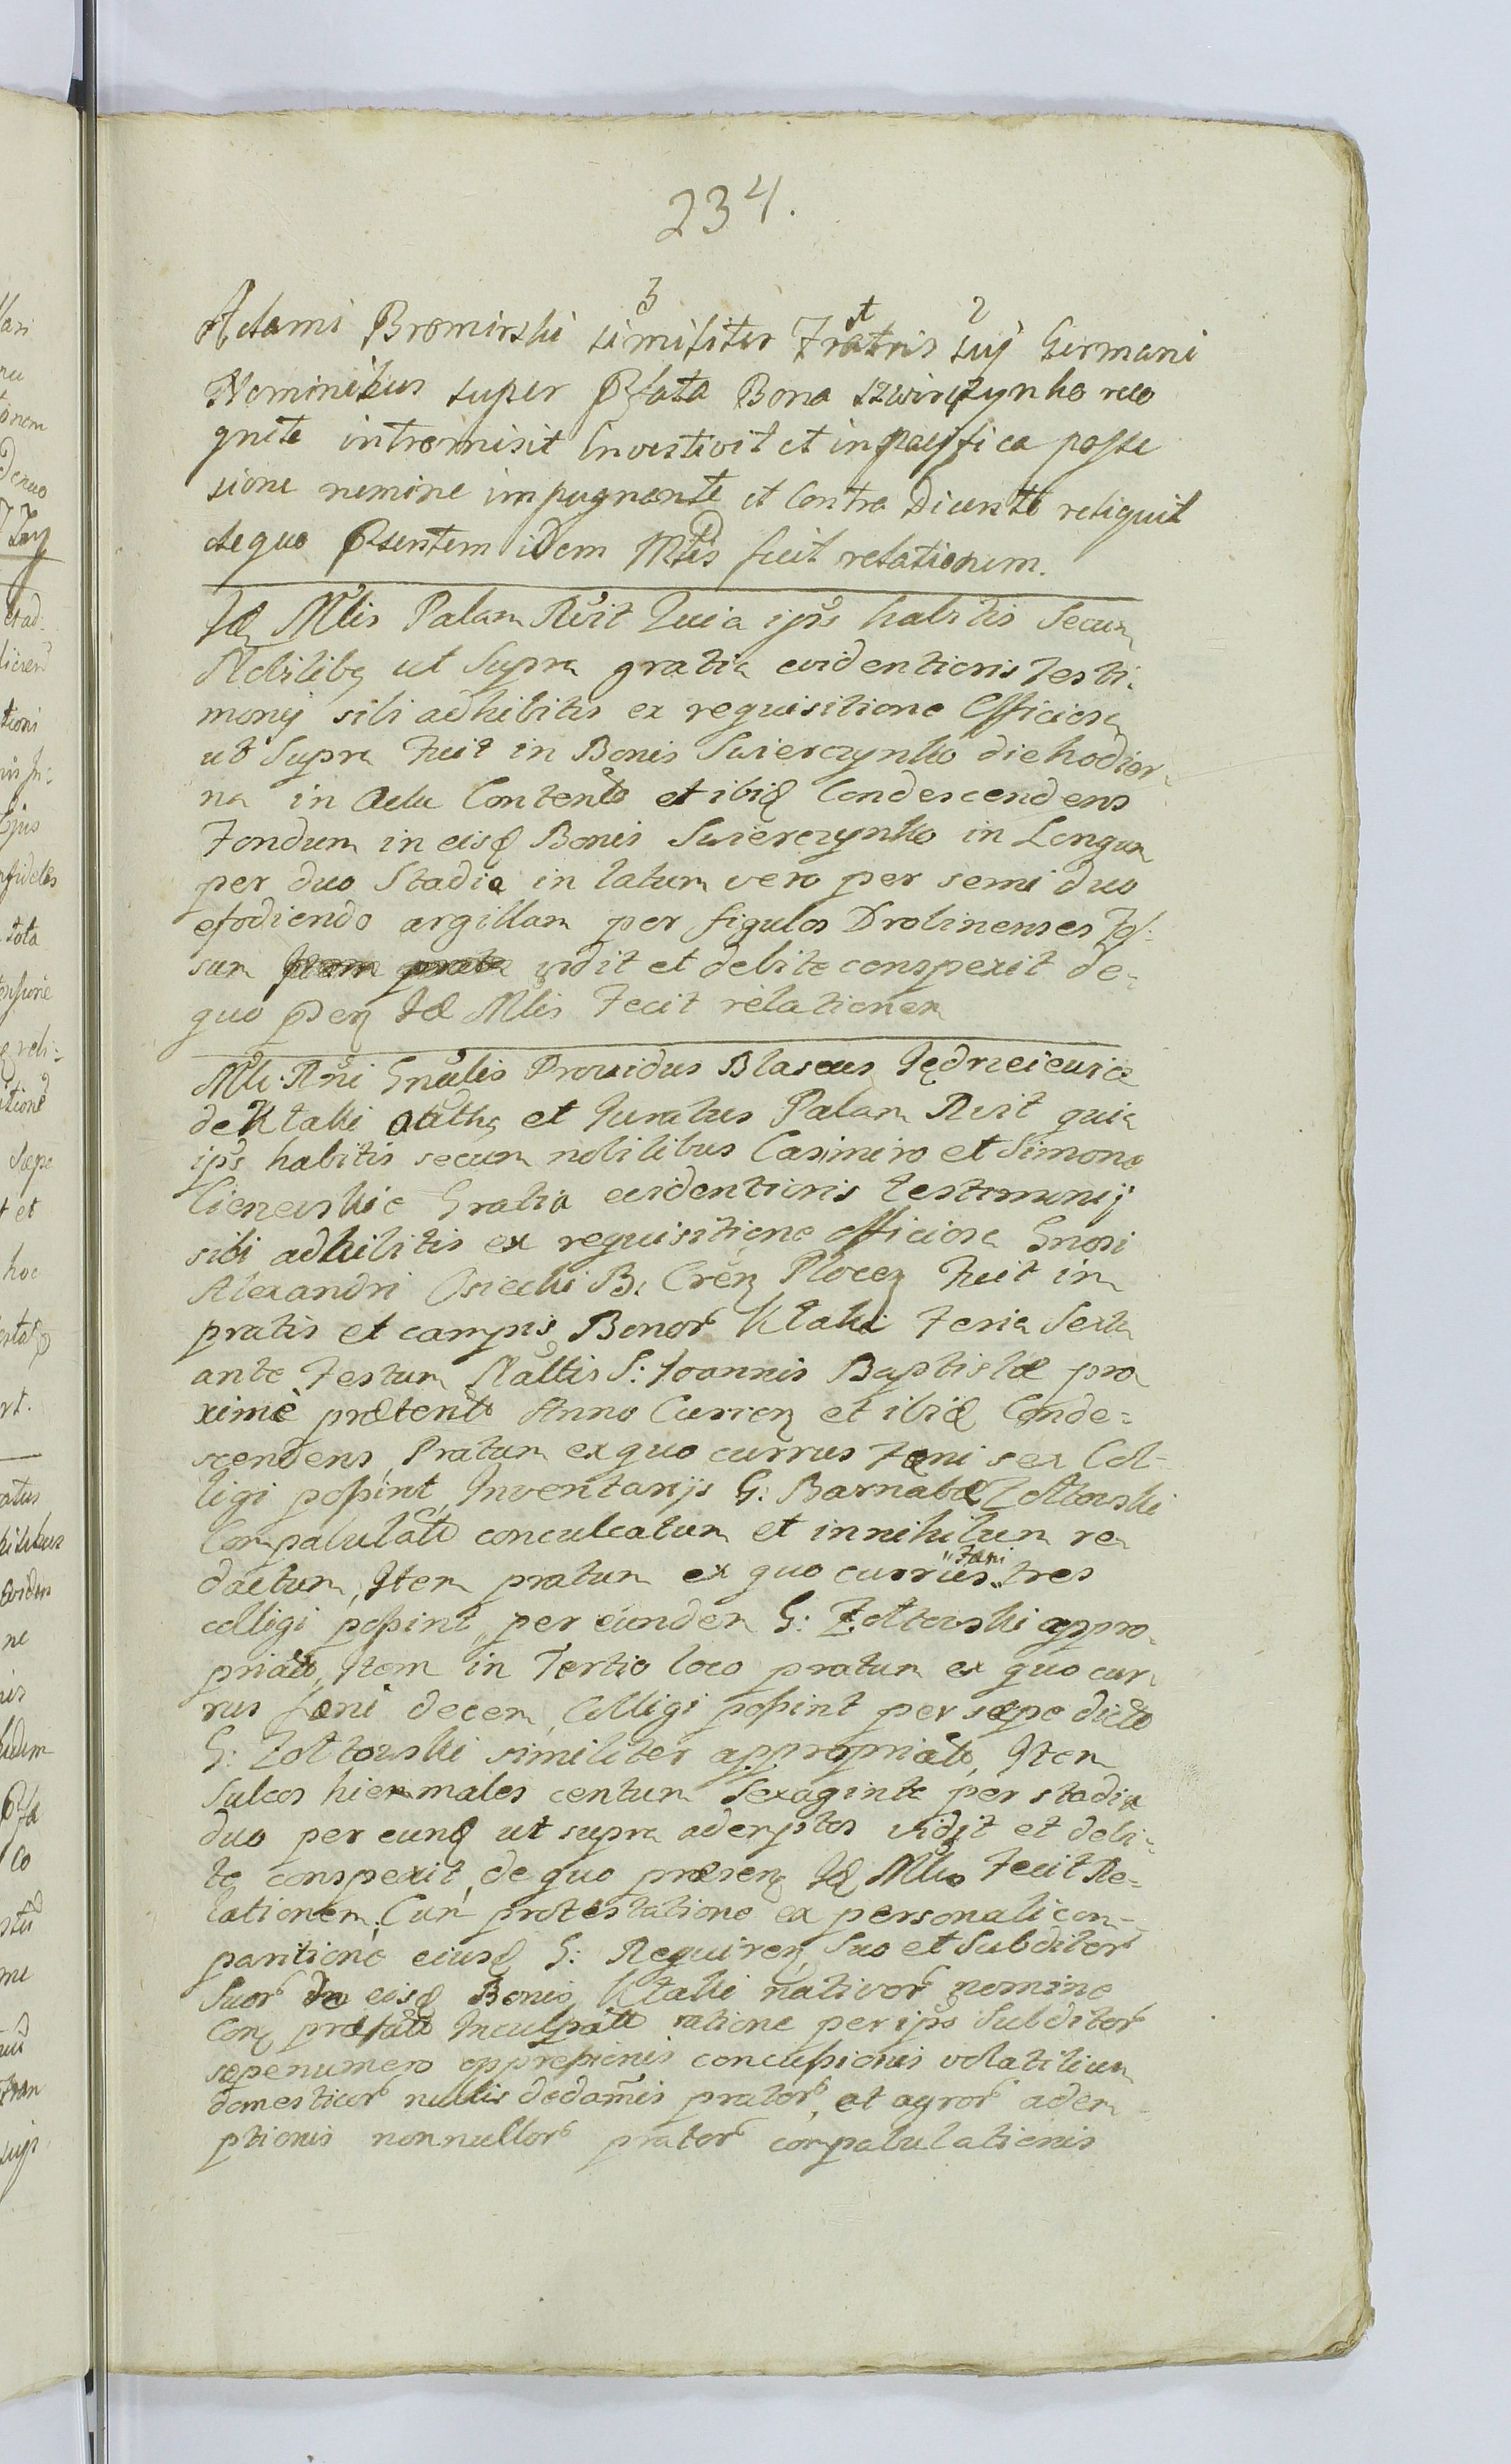 234.
Adami Bromirski similiter Fratris suy Germani
Nominibus super Pfata Bona Szwirczynko reco
gnite intromisit Investivit et in pacifica posse
sione nemine impugnante et Contra Dicente reliquit
de quo Psentem idem Mtis fecit relationem.
Id Mlis Palam Rvit Quia ips habitis Secum
Nobilibq ut Supra gratia evidentioris testi-
monij sibi adhibitis ex requisitione Officiosa
ut Supra Fuit in Bonis Swierczynko die hodier-
na in Actu Contento et ibiq Condescendens
Fondum in eisq Bonis Swierczynko in Longum
per duo Stadia in latum vero per semi duo
efodiendo argillam per figulos Drobinenses Fos:
sum vidit et debite conspexit de-
quo Psen Id Mlis Fecit relationem
Mli Rni Gnulis Providus Blaseus Jędrzeiewicz
de Ktaki oath et Juratus Palam Rvit quia
ips habitis secum nobilibus Casimiro et Simone
Gratia evidentioris testimonij
sibi adhibitis ex requisitione officiosa Gnosi
Alexandri Osiecki B: Cren Plocen Fuit in
pratis et campis Bonor Ktaki Feria Sexta
ante Festum Natlis S: Joannis Baptistæ pro
ximè præterito Anno Curren et ibiq Conde=
scendens Pratum ex quo currus Fæni sex Col=
ligi possint Inventarijs G: Barnabæ Zoltowski
Compabulato conculcatum et in nihilum re
dactum, Item pratum ex quo currus Fæni tres
colligi possint, per eundem G: Zoltowski appro-
priato, Item in Tertio loco pratum ex quo cur
rus fæni decem Colligi possint per sæpe dicto
G: Zoltowski similiter appropriato, Item
Sulcos hiemales centum Sexaginta per stadia
duo per eunq ut supra ademptos vidit et debi-
te conspexit, de quo præsen Id Mlis Fecit Re=
lationem. Cum protestatione ex personali com-
paritione eiusq G: Requiren Suo et Subditor
Suor de eisq Bonis Ktaki nativor nomine
Con præfato Inculpato ratione per ips Subditor
sæpenumero oppressionis concussionis volatilium
domesticor nullis dedamis prator, et agror adem
ptionis nonnullor prator compabulationis